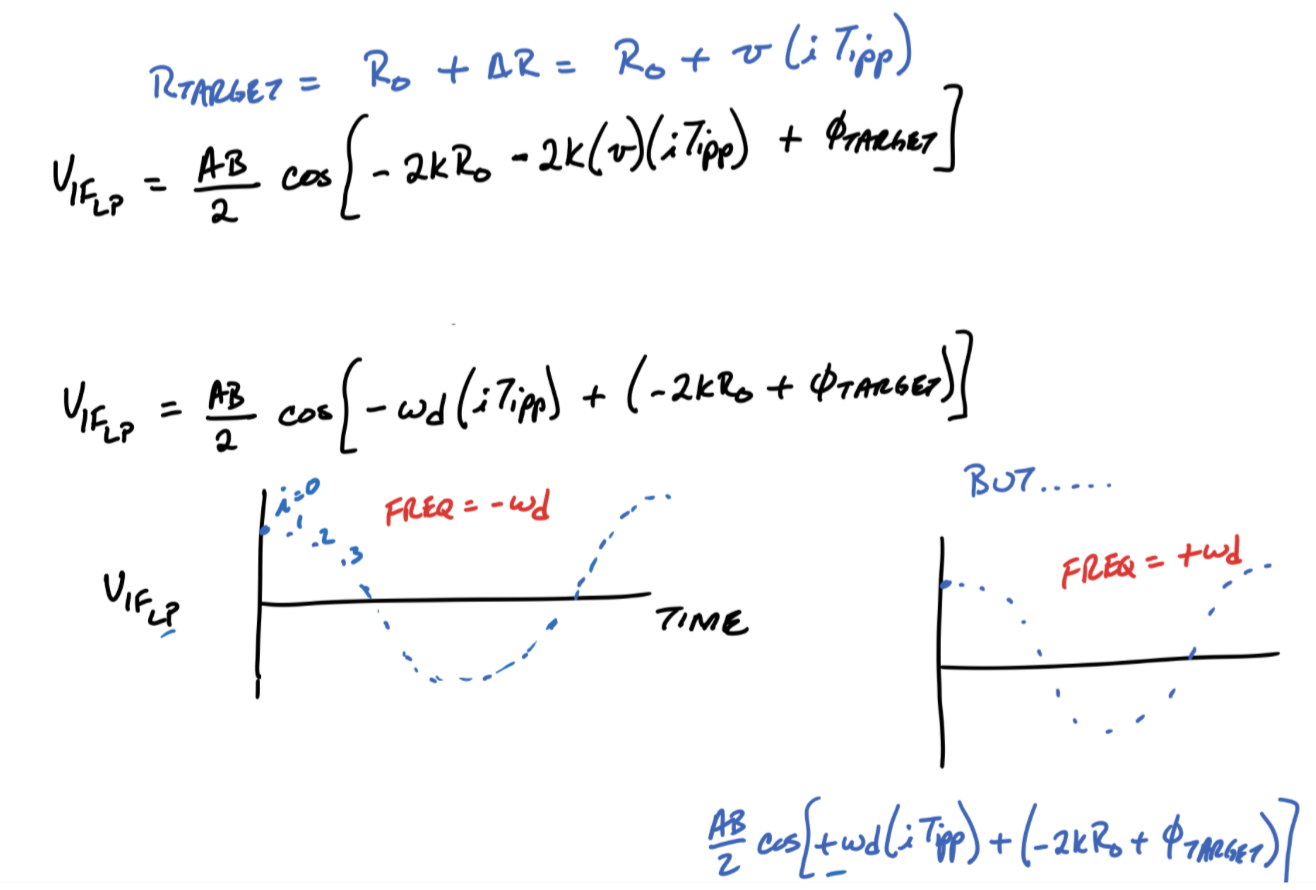 R_TARGET = R_0 + ΔR = R_0 + v (i T_ipp)
V_IF_LP = AB/2 cos[ - 2kR_0 - 2k(v)(i T_ipp) + φ_TARGET ]
V_IF_LP = AB/2 cos[ - ωd (i T_ipp) + (-2kR_0 + φ_TARGET) ]
BUT.....
i=0
1
2
3
FREQ = -ωd
FREQ = +ωd
V_IF_LP
TIME
AB/2 cos[ +ωd (i T_ipp) + (-2kR_0 + φ_TARGET) ]